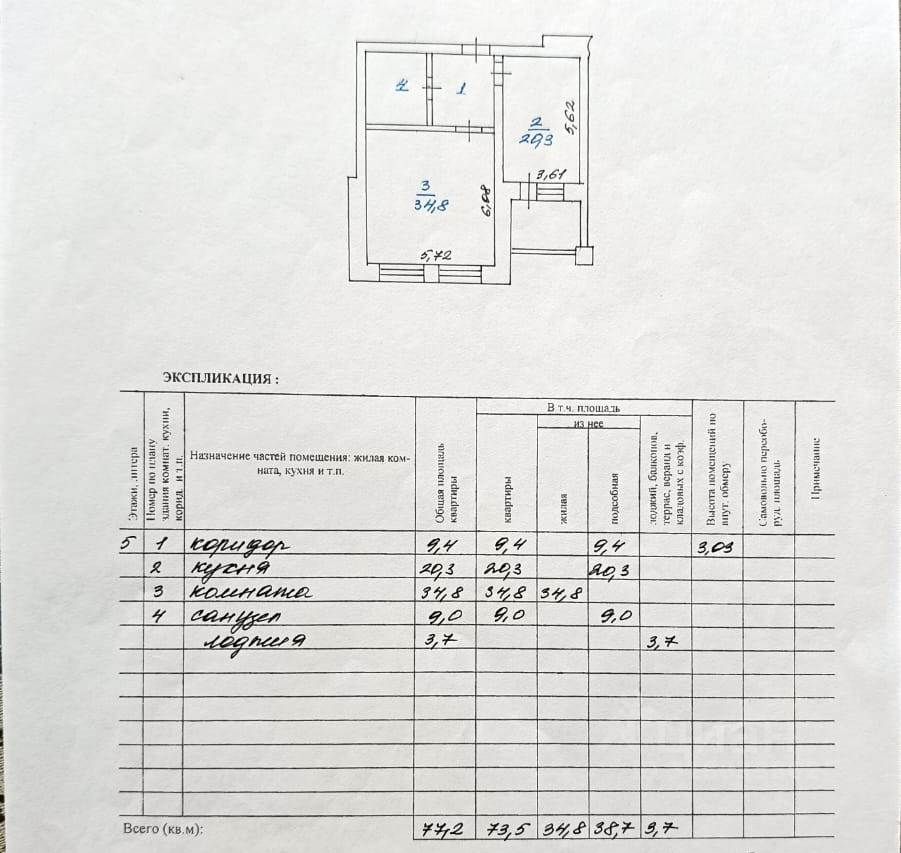 4
1
2
20,3
5,62
3,61
3
34,8
6,08
5,72
ЭКСПЛИКАЦИЯ :
Этажи, литера
Номер по плану здания комнат, кухни, корид. и т.п.
Назначение частей помещения: жилая ком-
ната, кухня и т.п.
Общая площадь квартиры
В т.ч. площадь
из нее
квартиры
жилая
подсобная
лоджий, балконов, террас, веранд и кладовых с коэф.
Высота помещений по внут. обмеру
Самовольно переобо-
руд. площадь
Примечание
5 1 коридор 9,4 9,4 9,4 3,03
2 кухня 20,3 20,3 20,3
3 комната 34,8 34,8 34,8
4 санузел 9,0 9,0 9,0
лоджия 3,7 3,7
Всего (кв.м): 77,2 73,5 34,8 38,7 3,7